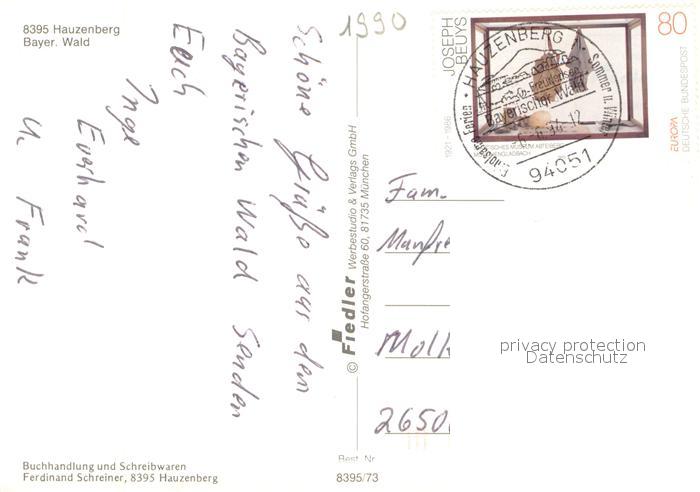 8395 Hauzenberg
Bayer. Wald
1990
Schöne Grüße aus den
Bayerischen Wald senden
Euch
Inge
Everhard
u. Frank
Buchhandlung und Schreibwaren
Ferdinand Schreiner, 8395 Hauzenberg
© Fiedler Werbestudio & Verlags GmbH
Hofangerstraße 60, 81735 München
Best. Nr.
8395/73
JOSEPH
BEUYS
1921-1986
80
EUROPA
DEUTSCHE BUNDESPOST
HAUZENBERG
Bayerischer Wald
Erholsame Ferien
Sommer u. Winter
94051
Fam.
Manfre
Molk
2650
privacy protection
Datenschutz